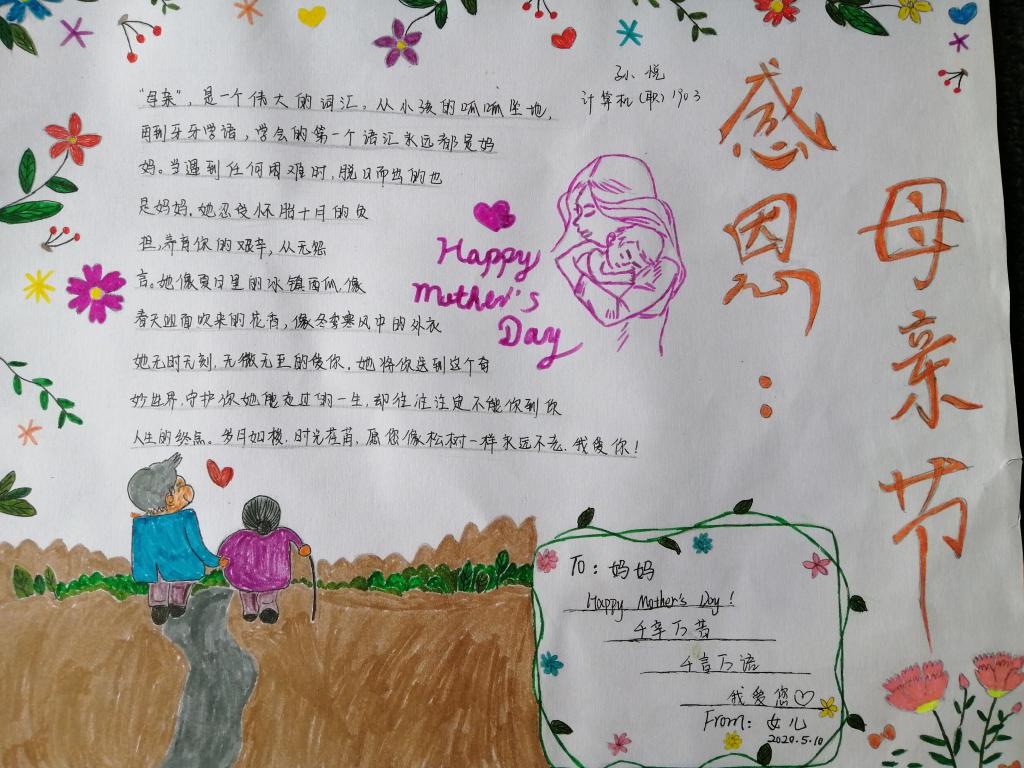 感恩：
母亲节
孙悦
计算机(职)1903
"母亲"，是一个伟大的词汇，从小孩的呱呱坠地，
再到牙牙学语，学会的第一个语汇永远都是妈
妈。当遇到任何困难时，脱口而出的也
是妈妈，她忍受怀胎十月的负
担，养育你的艰辛，从无怨
言。她像夏日里的冰镇西瓜，像
春天迎面吹来的花香，像冬季寒风中的外衣
她无时无刻，无微无至的爱你，她将你送到这个奇
妙世界，守护你她能走过的一生，却往往注定不能伴到你
人生的终点。岁月如梭，时光荏苒，愿您像松树一样永远不老，我爱你！
Happy
Mother's
Day
To：妈妈
Happy Mother's Day！
千辛万苦
千言万语
我爱您♡
From：女儿
2020.5.10